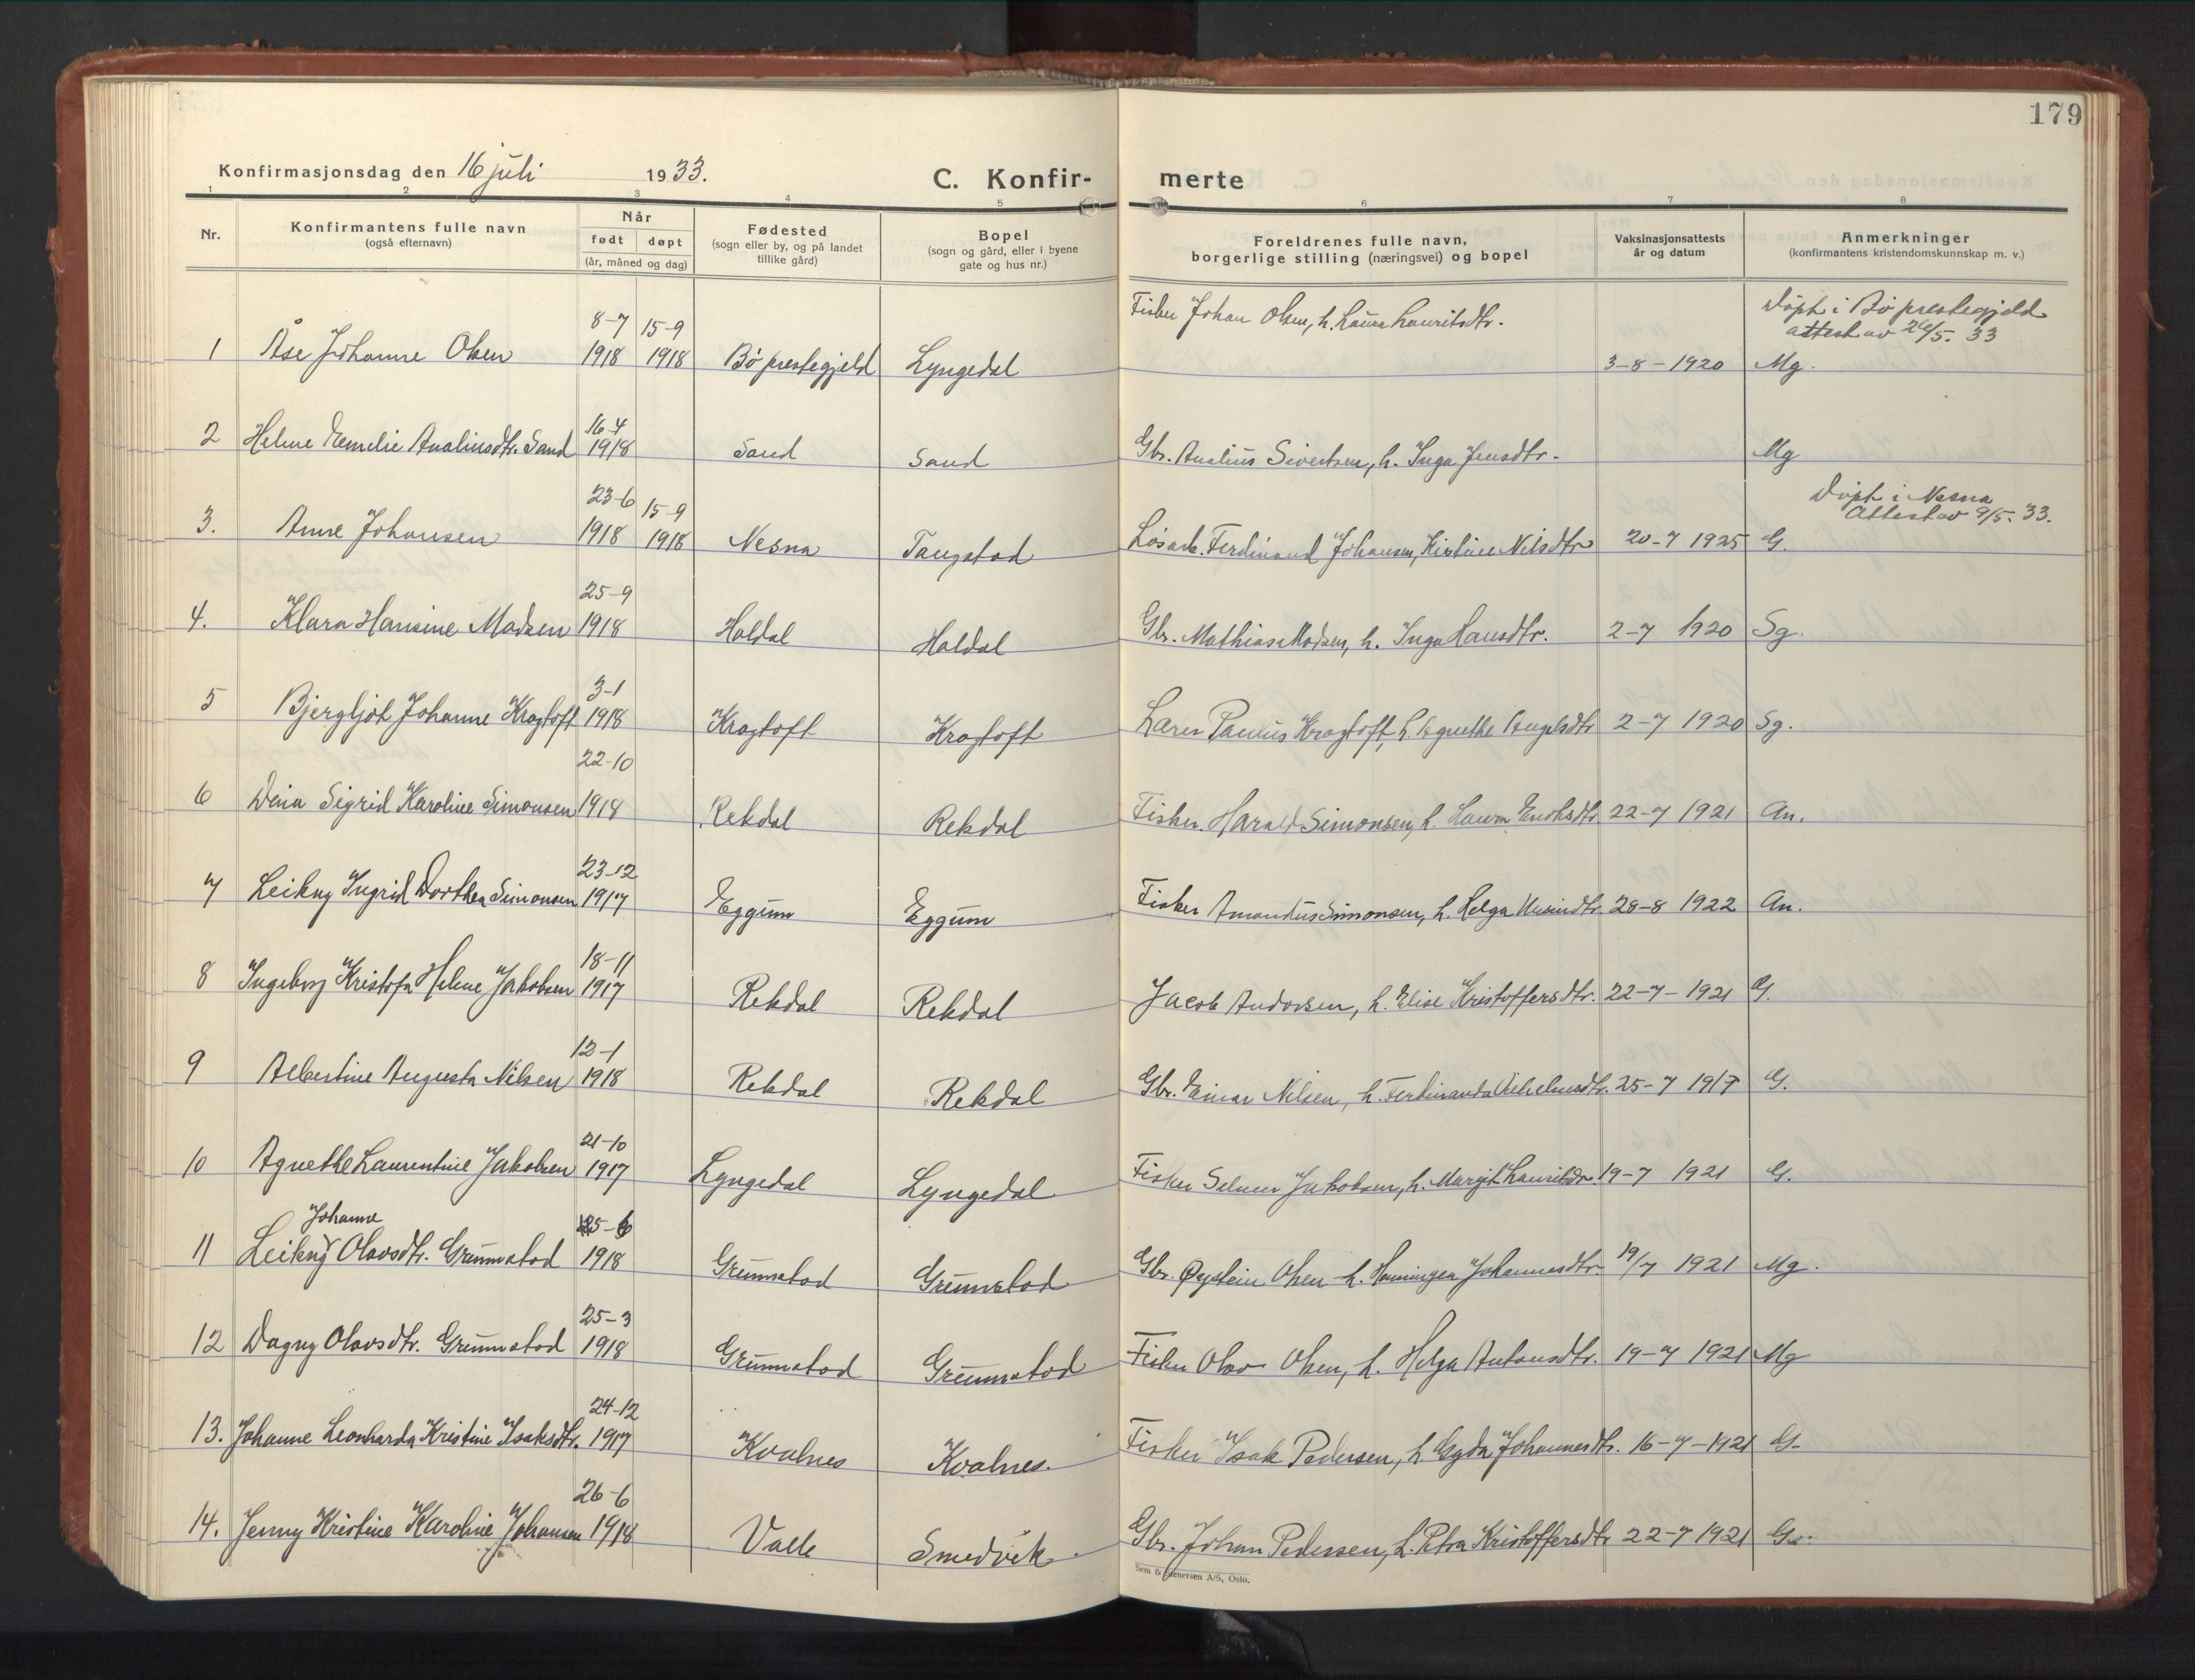 179
Konfirmasjonsdag den 16 juli 1933. C. Konfir- merte
1 2 3 4 5 6 7 8
Nr. Konfirmantens fulle navn (også efternavn) Når født døpt (år, måned og dag) Fødested (sogn eller by, og på landet tillike gård) Bopel (sogn og gård, eller i byene gate og hus nr.) Foreldrenes fulle navn, borgerlige stilling (næringsvei) og bopel Vaksinasjonsattests år og datum Anmerkninger (konfirmantens kristendomskunnskap m. v.)
1 Åse Johanne Olsen 8-7 1918 15-9 1918 Bø prestegjeld Lyngedal Fisker Johan Olsen, h. Laura Lauritsdtr. 3-8-1920 Døpt i Bø prestegjeld attest av 26/5. 33 Mg.
2 Helene Emelie Analiusdtr. Sand 16-4 1918 Sand Sand Gbr. Analius Sivertsen, h. Inga Jensdtr. Mg
3. Anne Johansen 23-6 1918 15-9 1918 Nesna Tangstad Løsarb. Ferdinand Johansen, Kirstine Nilsdtr 20-7 1925 Døpt i Nesna Attest av 9/5. 33. G.
4. Klara Hansine Madsen 25-9 1918 Haldal Haldal Gbr. Mathias Madsen, h. Inga Hansdtr. 2-7 1920 Sg.
5 Bjergljot Johanne Kragtoft 3-1 1918 Kragtoft Kragtoft Lærer Paulus Kragtoft, h. Agnethe Engelsdtr 2-7 1920 Sg.
6 Sigrid Karoline Simonsen 22-10 1918 Rekdal Rekdal Fisker. Harald Simonsen, h. Laura 22-7 1921 An.
7 Leikny Ingrid Dorthea Simonsen 23-12 1917 Eggum Eggum Fisker Amandus Simonsen, h. Helga 28-8 1922 An.
8 Ingeborg Kristofa Helene Jakobsen 18-11 1917 Rekdal Rekdal Jacob Andorsen, h. Elise Kristoffersdtr. 22-7-1921 G.
9 Albertine Augusta Nilsen 12-1 1918 Rekdal Rekdal Gbr. Einar Nilsen, h. Ferdinanda Vilhelmsdtr. 25-7 1919 G.
10 Agnethe Laurentine Jakobsen 21-10 1917 Lyngedal Lyngedal Fisker Selmer Jakobsen, h. Margit Lauritsdtr. 19-7 1921 G.
11 Leikny Johanne Olavsdtr. Grunnstad 25-6 1918 Grunnstad Grunnstad Gbr. Øystein Olsen h. Henningea Johannesdtr. 19/7 1921 Mg.
12 Dagny Olavsdtr. Grunnstad 25-3 1918 Grunnstad Grunnstad Fisker Olav Olsen, h. Helga Antonsdtr. 19-7 1921 Mg
13. Johanne Leonharda Kristine Isaksdtr. 24-12 1917 Kvalnes Kvalnes. Fisker Isak Pedersen, h. Gyda Johannesdtr. 16-7-1921 G.
14. Jenny Kristine Karoline Johansen 26-6 1918 Valle Smedvik. Gbr. Johan Pedersen, h. Petra Kristoffersdtr 22-7 1921 G.
Sem & Stenersen A/S, Oslo.